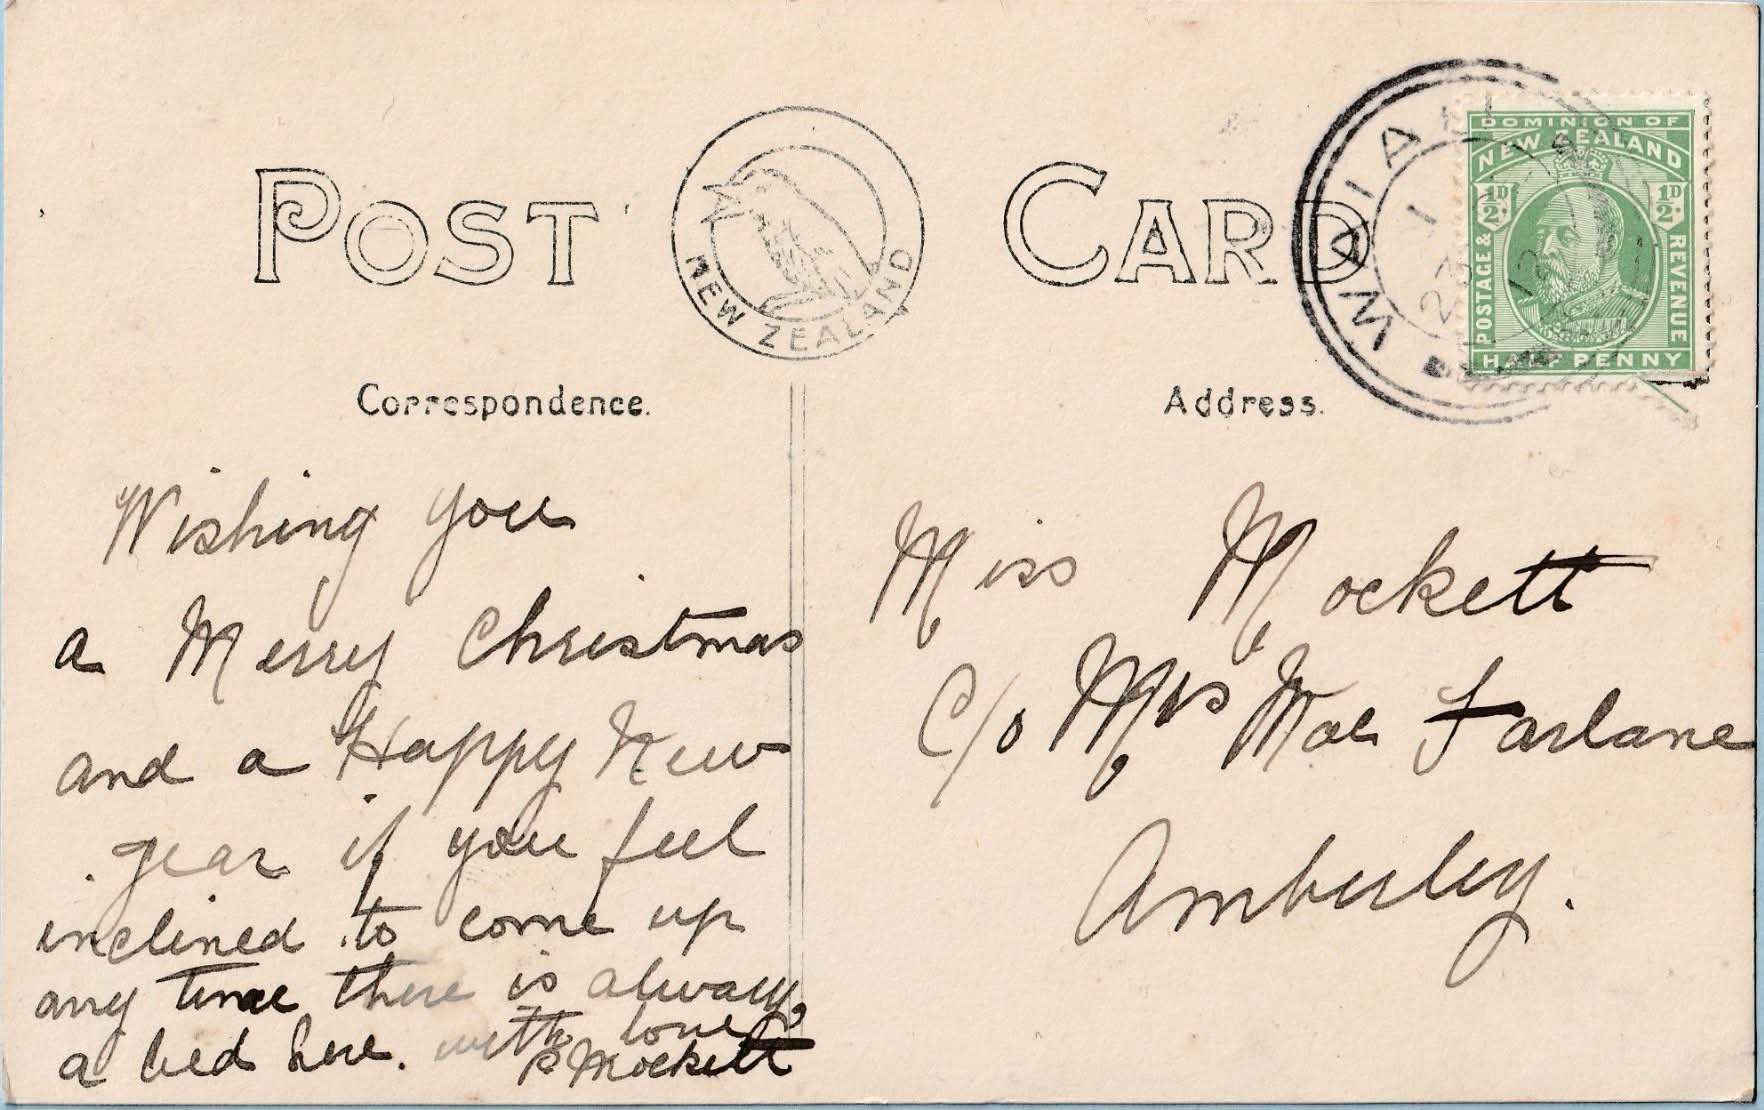 POST CARD
NEW ZEALAND
WAIAU
DOMINION OF
NEW ZEALAND
½D ½D
POSTAGE &
REVENUE
HALF PENNY
Correspondence.
Address.
Wishing you
a Merry Christmas
and a Happy New
year if you feel
inclined to come up
any time there is always
a bed here. with love
P Mockett
Miss Mockett
C/o Mrs Mac Farlane
Amberley.